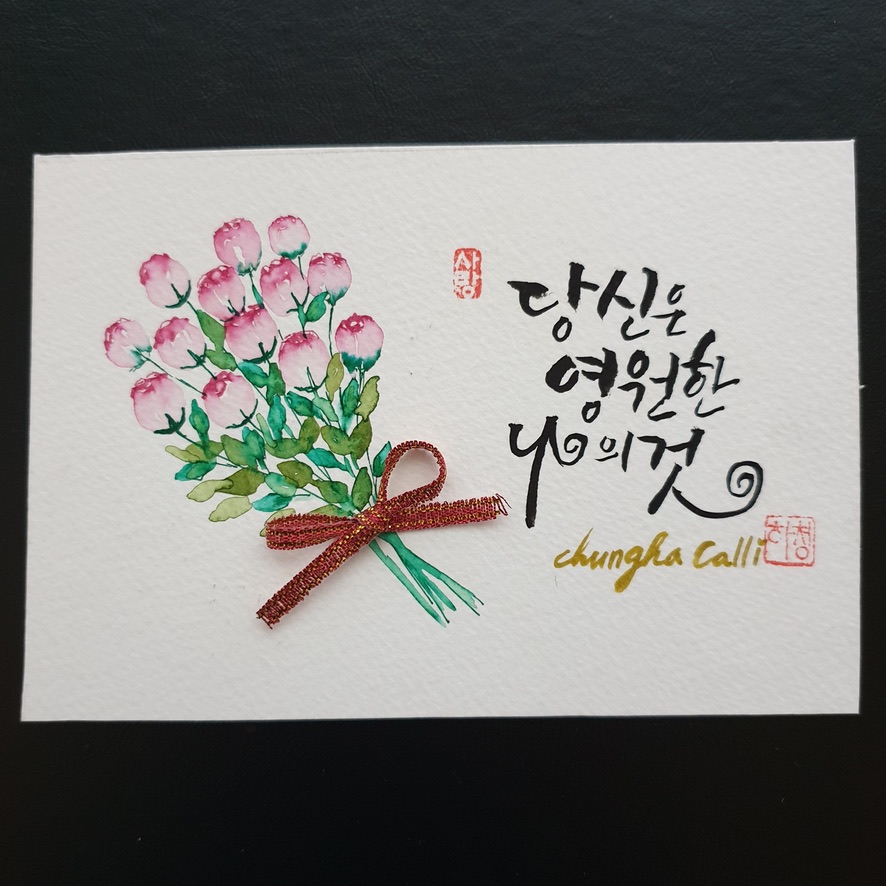 사랑
당신은
영원한
나의것
chungha calli